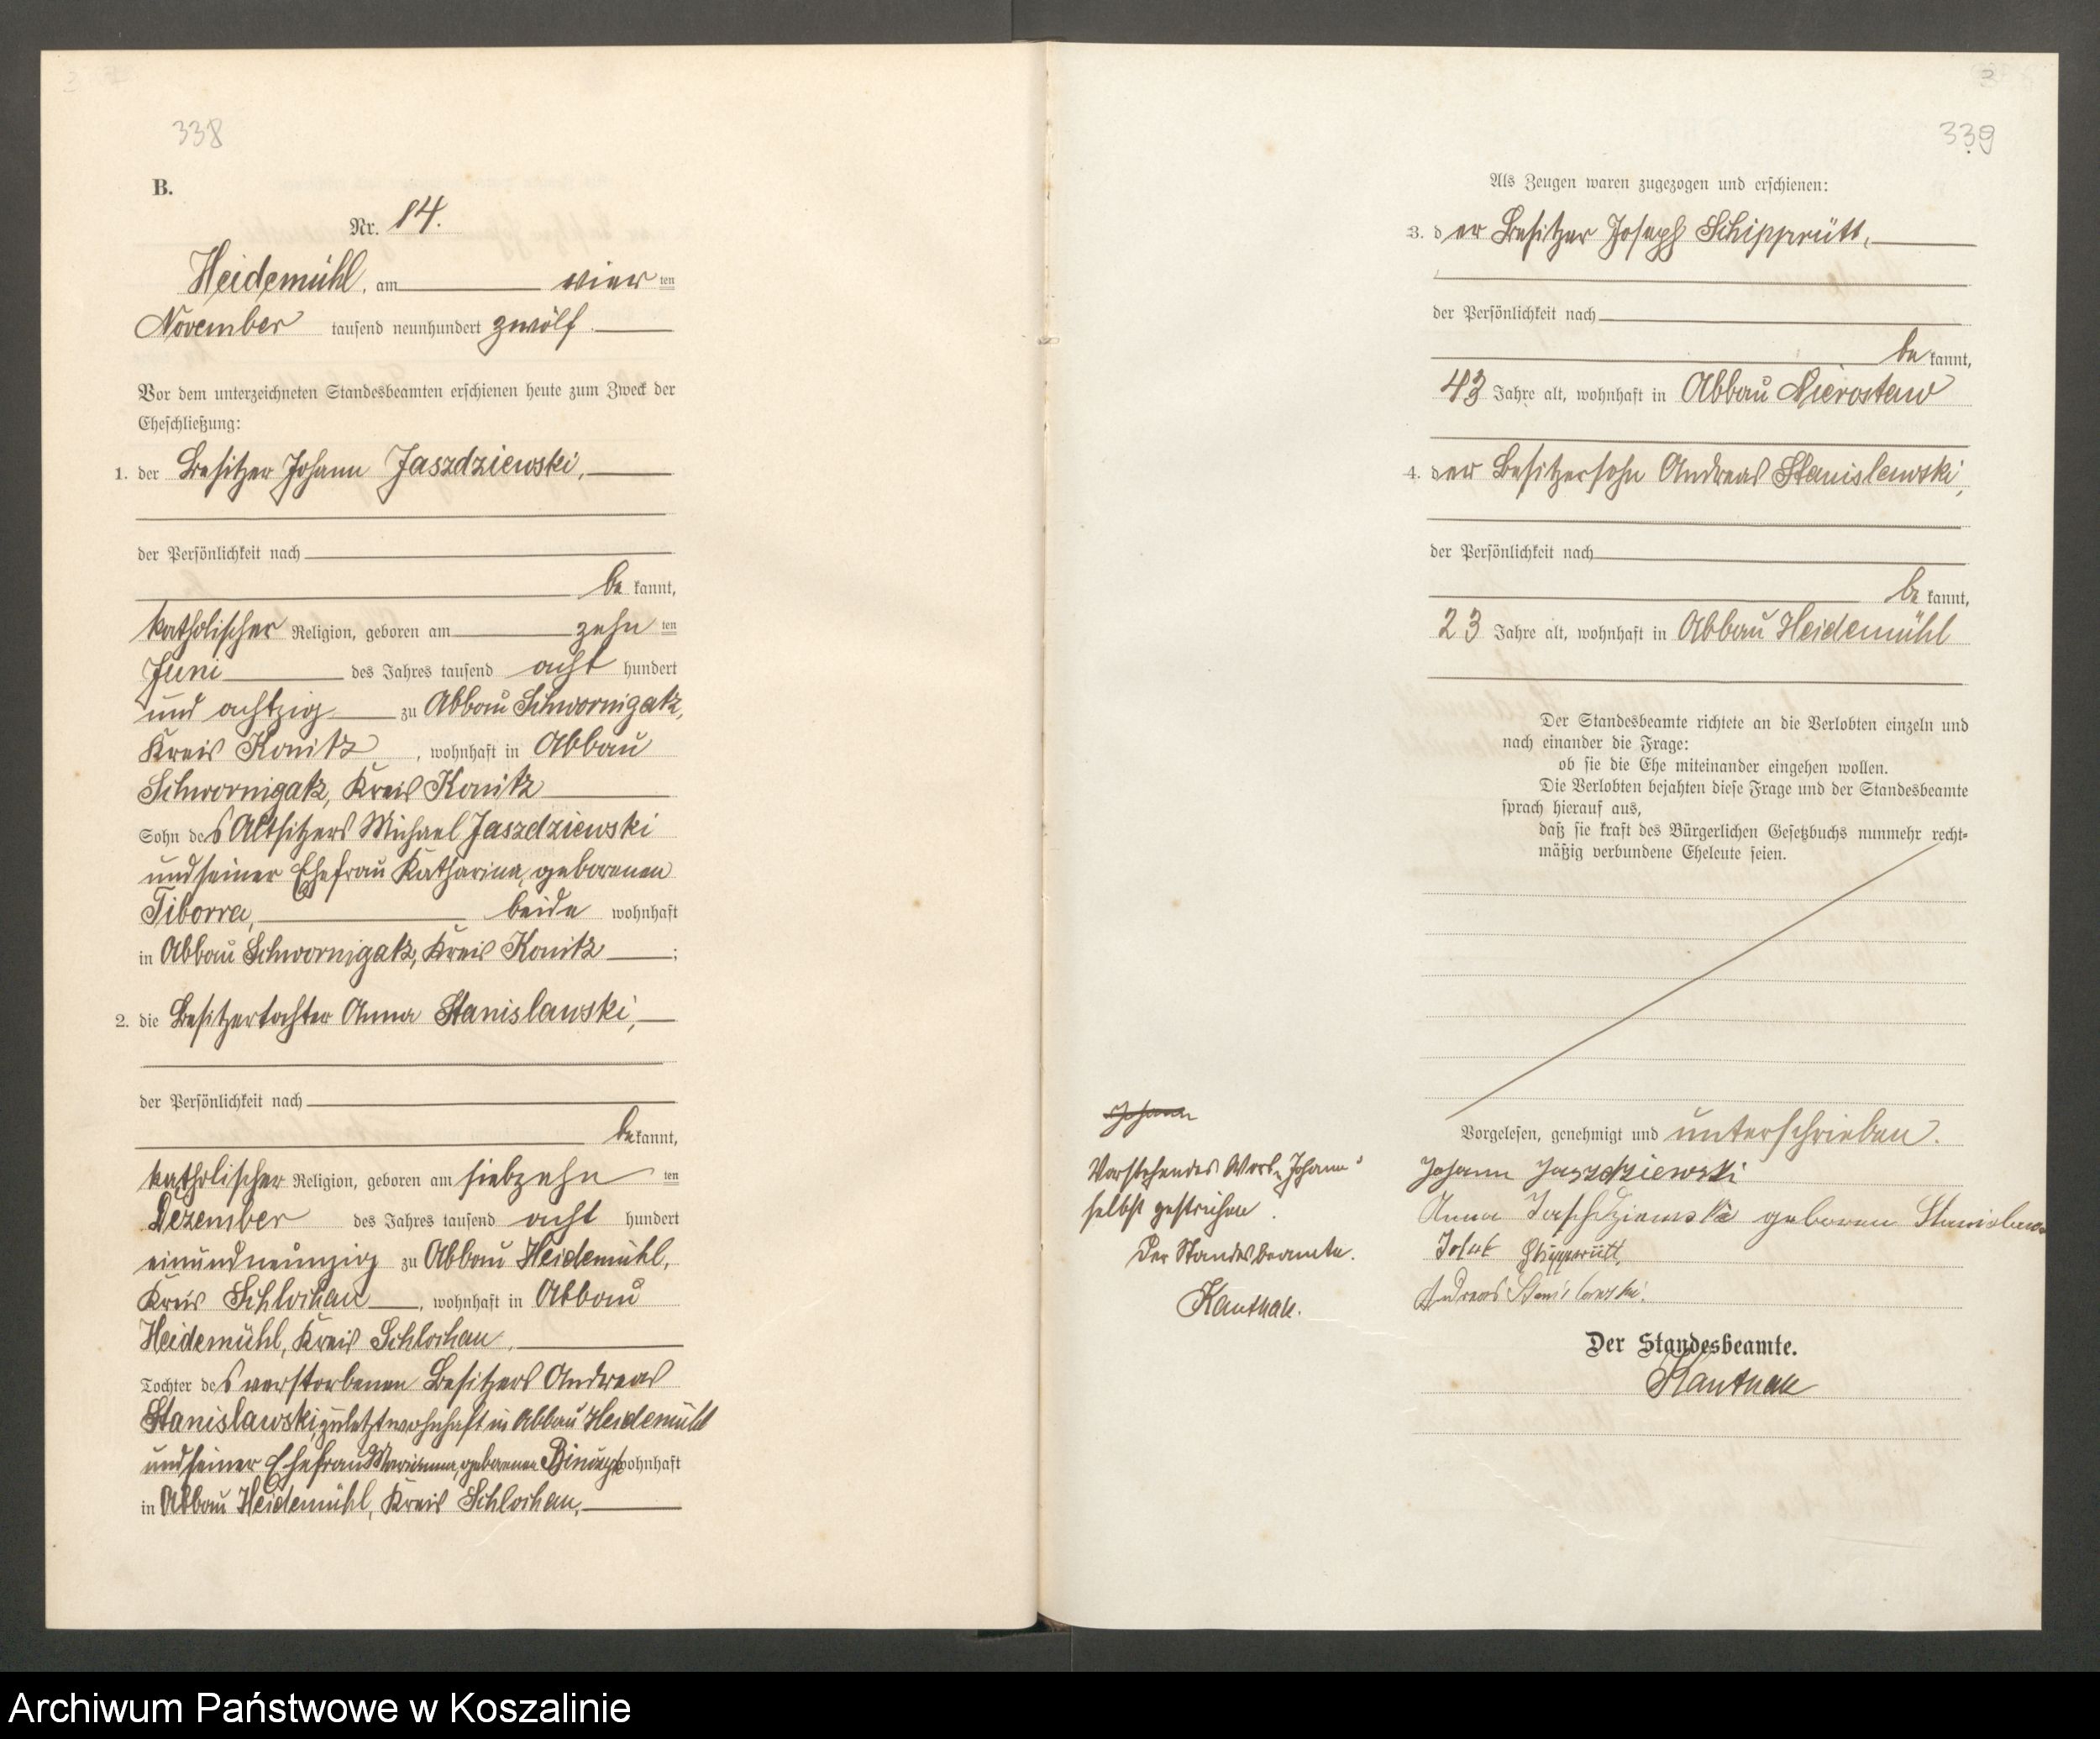 338
B.
Nr. 14.
Heidemühl, am vier ten
November tausend neunhundert zwölf.
Vor dem unterzeichneten Standesbeamten erschienen heute zum Zweck der
Eheschließung:
1. der Besitzer Johann Jaszdziewski,
der Persönlichkeit nach
be kannt,
katholischer Religion, geboren am zehn ten
Juni des Jahres tausend acht hundert
und achtzig zu Abbau Schwornigatz,
Kreis Konitz, wohnhaft in Abbau
Schwornigatz, Kreis Konitz
Sohn des Altsitzers Michael Jaszdziewski
und seiner Ehefrau Katharina, geborenen
Tiborra, beide wohnhaft
in Abbau Schwornigatz, Kreis Konitz ;
2. die Besitzertochter Anna Stanislawski,
der Persönlichkeit nach
be kannt,
katholischer Religion, geboren am siebzehn ten
Dezember des Jahres tausend acht hundert
einundneunzig zu Abbau Heidemühl,
Kreis Schlochau, wohnhaft in Abbau
Heidemühl, Kreis Schlochau,
Tochter des verstorbenen Besitzers Andreas
Stanislawski, zuletzt wohnhaft in Abbau Heidemühl
und seiner Ehefrau Marianna, geborenen wohnhaft
in Abbau Heidemühl, Kreis Schlochau,
3
339
Als Zeugen waren zugezogen und erschienen:
3. der Besitzer Joseph Schipprütt,
der Persönlichkeit nach
be kannt,
43 Jahre alt, wohnhaft in Abbau Nierostaw
4. der Besitzersohn Andreas Stanislawski,
der Persönlichkeit nach
be kannt,
23 Jahre alt, wohnhaft in Abbau Heidemühl
Der Standesbeamte richtete an die Verlobten einzeln und
nach einander die Frage:
ob sie die Ehe miteinander eingehen wollen.
Die Verlobten bejahten diese Frage und der Standesbeamte
sprach hierauf aus,
daß sie kraft des Bürgerlichen Gesetzbuchs nunmehr recht-
mäßig verbundene Eheleute seien.
Vorgelesen, genehmigt und unterschrieben.
Johann Jaszdziewski
Anna Jaschdziewski geboren Stanislaws
Josef Schipprütt,
Andreas Stanislawski.
Der Standesbeamte.
Kanthak
Johann
Vorstehendes Wort „Johann"
selbst gestrichen.
Der Standesbeamte.
Kanthak.
Archiwum Państwowe w Koszalinie